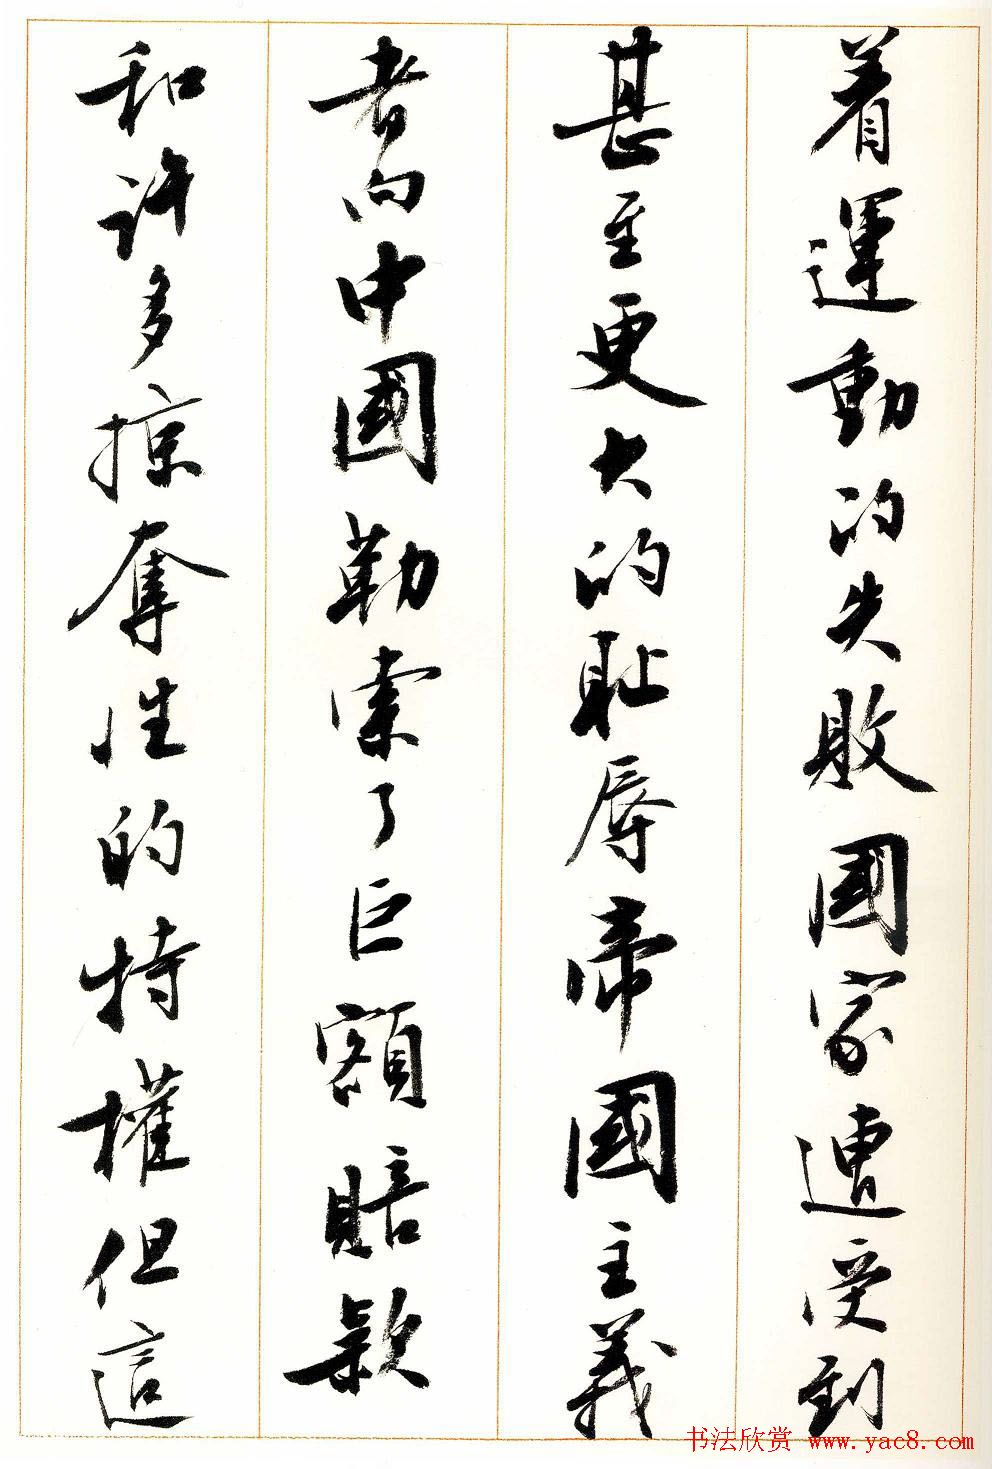 着運動的失敗國家遭受到
甚至更大的恥辱帝國主義
者向中國勒索了巨額賠款
和许多掠奪性的特權但這
书法欣赏 www.yac8.com